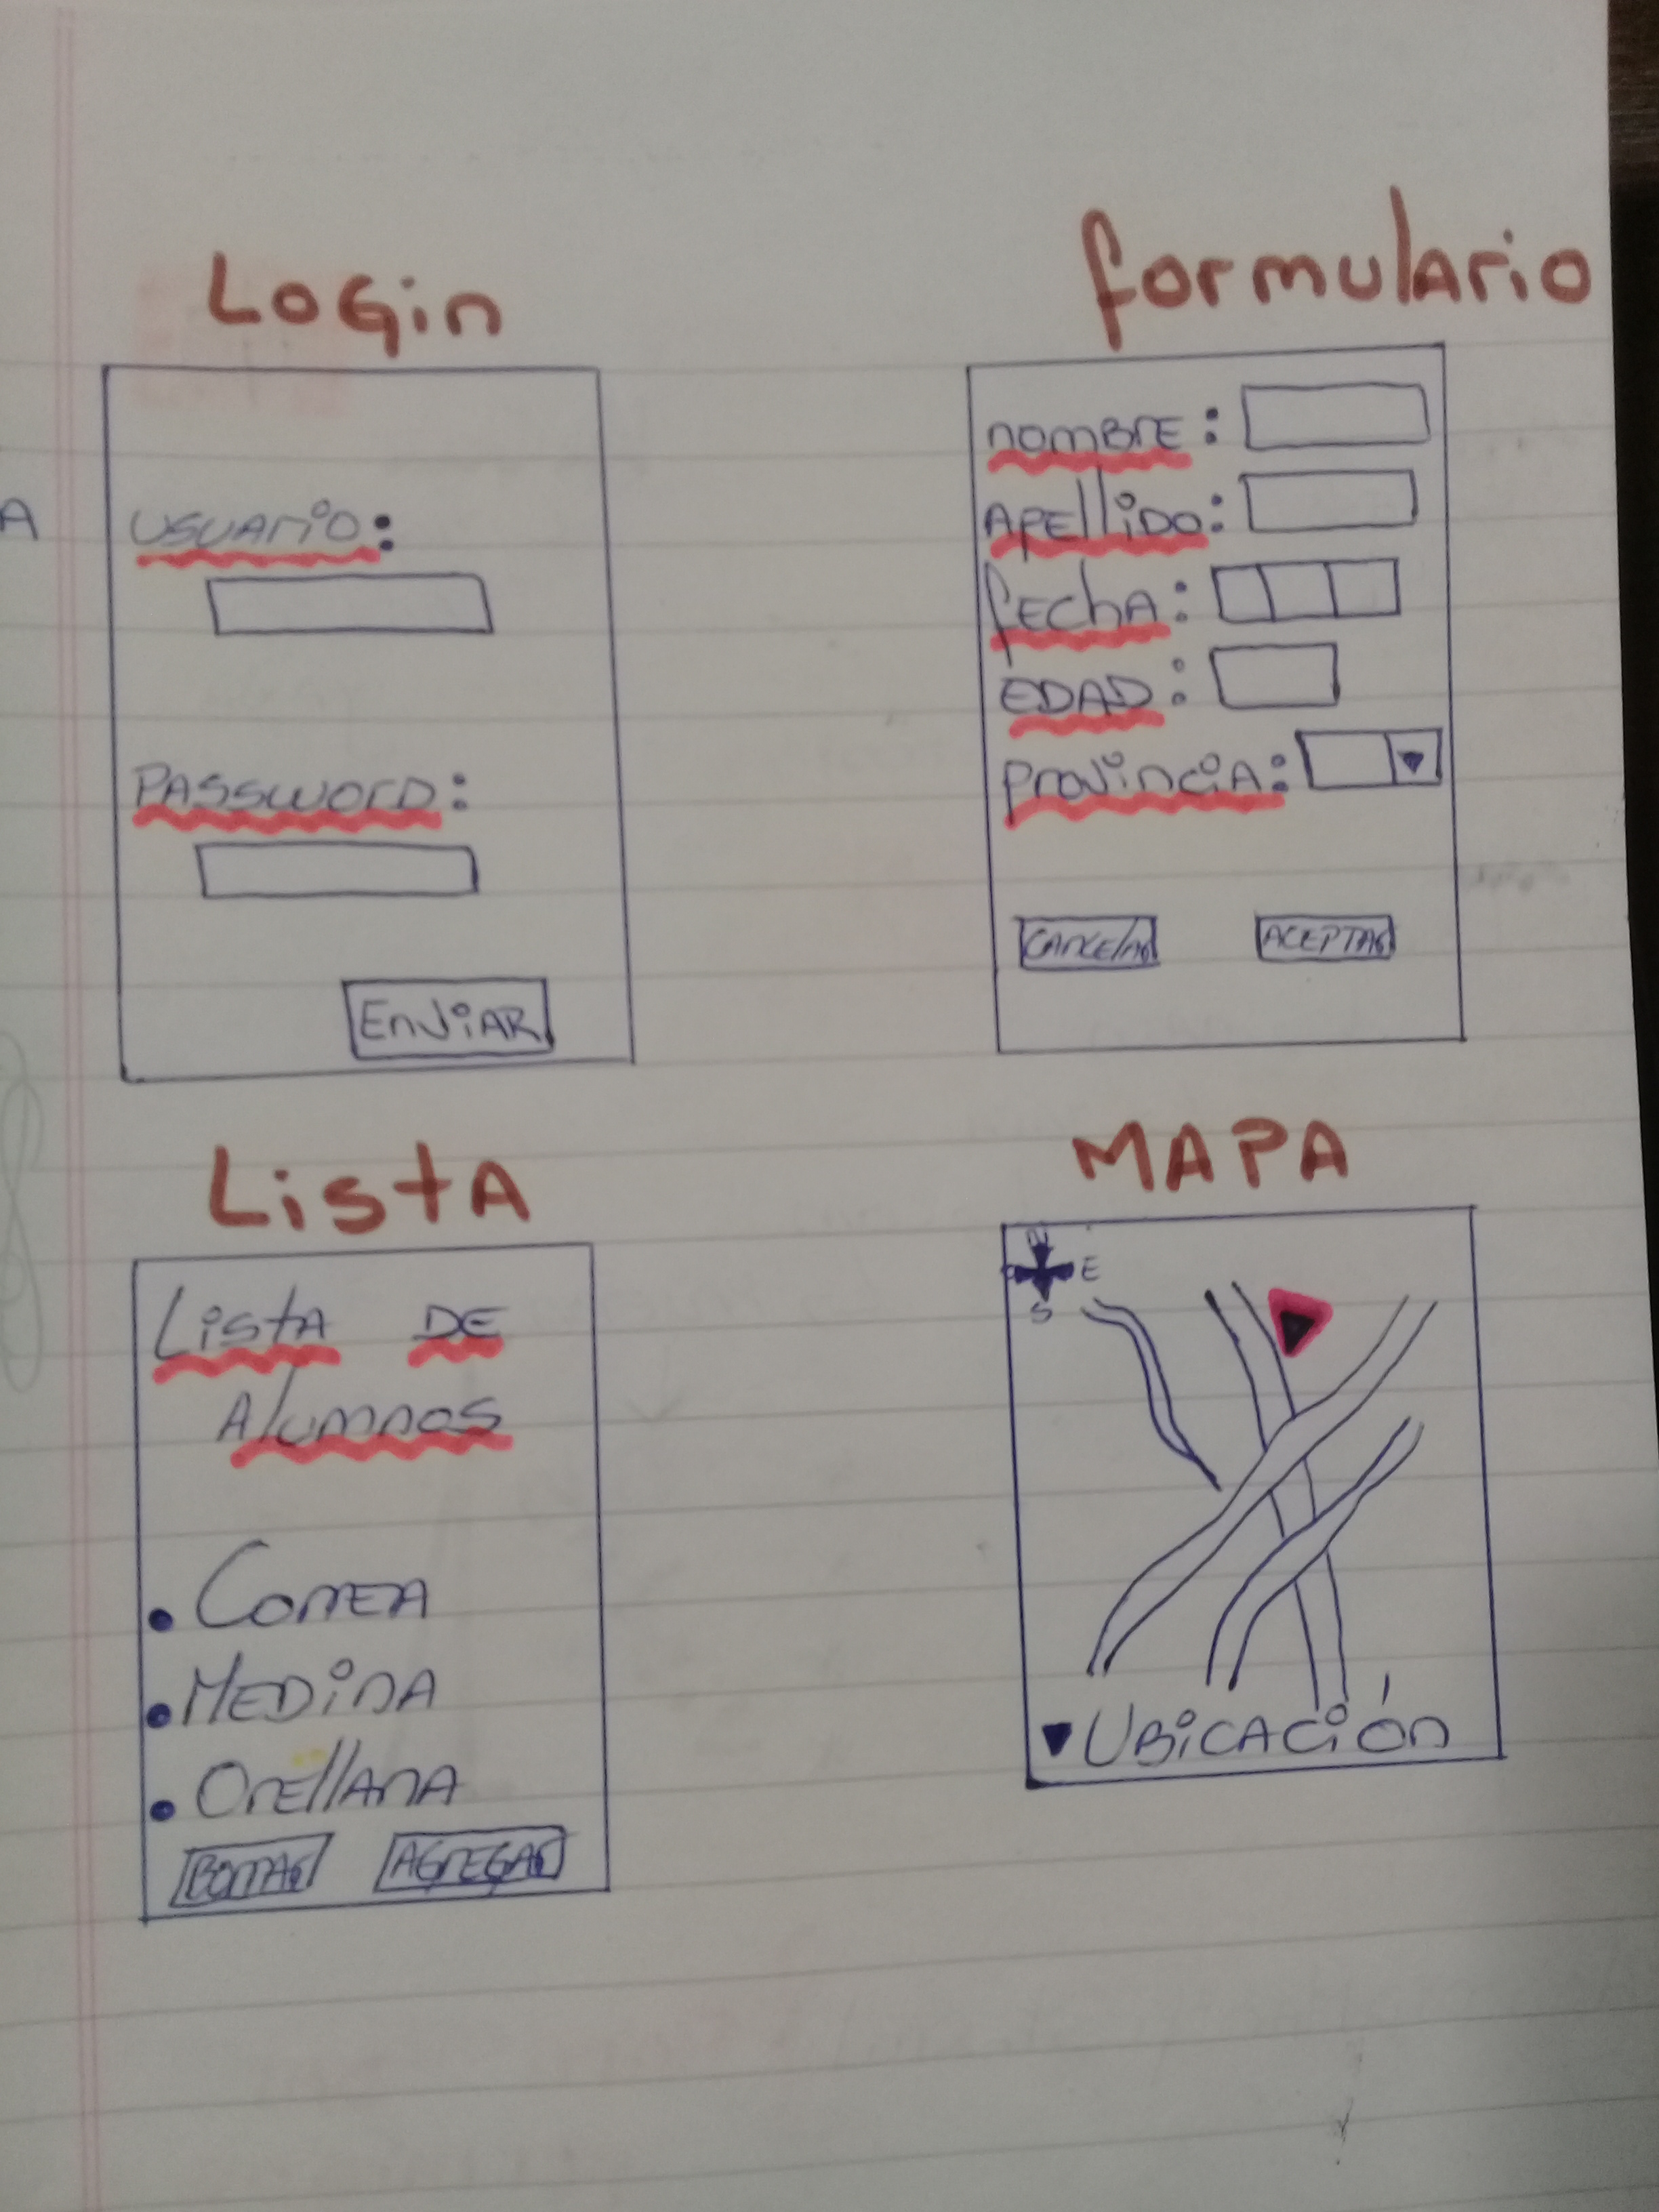 Login
A
Usuario:
Password:
Enviar
formulario
nombre:
Apellido:
fecha:
Edad:
Provincia:
Cancelar
Aceptar
Lista
Lista de
Alumnos
• Correa
• Medina
• Orellana
Borrar
Agregar
MAPA
N
O E
S
Ubicación